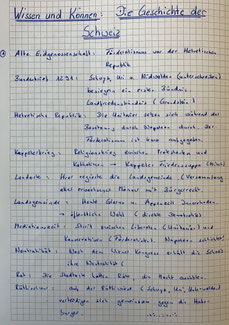 Wissen und Können: Die Geschichte der
Schweiz
Alte Eidgenossenschaft: Föderalismus vor der Helvetischen
Republik
Bundesbrief 1291: Schwyz, Uri u Nidwalden (unterschreiben)
besiegeln ein erstes Bündnis
Landfriedensbündnis
Helvetische Republik: Die Unitarier setzen sich während der
Besetzung durch Napoleon durch. Der
Föderalismus ist
Kappelerkrieg: Religionskrieg zwischen Protestanten und
Katholiken → Kappeler
Landorte: Hier regierte die Landsgemeinde (Versammlung
aller erwachsener Männer mit Bürgerrecht
Landsgemeinde: Heute Glarus u Appenzell Innerrhoden
→ öffentliche Wahl (direkte Demokratie)
Mediationszeit: Streit zwischen Liberalen (Unitarier) und
Konservativen (Föderalisten). Napoleon schlichtet
Neutralität: Nach dem Wiener Kongress erhält die Schweiz
ihre Neutralität
Rat: Die Stadtorte hatten Räte, die Macht ausübten.
Rütlischwur: Auf der Rütliwiese (Schwyz, Uri, Unterwalden)
verteidigen sich gemeinsam gegen die Habs-
burger